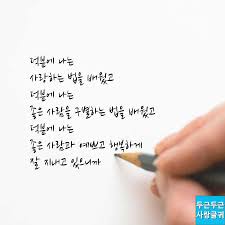 덕분에 나는
사랑하는 법을 배웠고
덕분에 나는
좋은 사람을 구별하는 법을 배웠고
덕분에 나는
좋은 사람과 예쁘고 행복하게
잘 지내고 있으니까
두근두근
사랑글귀